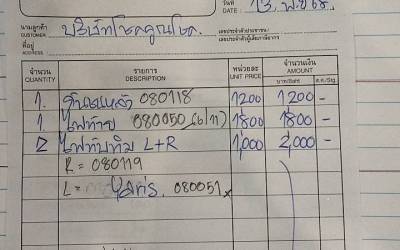 วันที่
DATE 13. พ.ย 65.
นามลูกค้า
CUSTOMER บริษัทโชคคูณโชค.
เลขประจำตัวประชาชน/
ที่อยู่
ADDRESS
เลขประจำตัวผู้เสียภาษีอากร
จำนวน รายการ หน่วยละ จำนวนเงิน
QUANTITY DESCRIPTION UNIT PRICE AMOUNT
บาท/Baht ส.ต./Stg.
1. 080118 1200 1200 -
1 ไฟท้าย 080050 (6/11) 1800 1800 -
2 ไฟทับทิม L+R 1,000 2,000 -
R = 080119
L = 080051